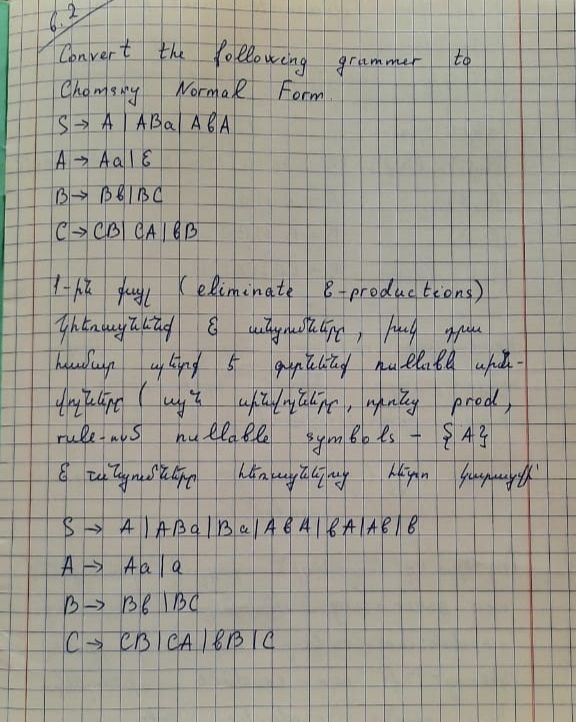 6.2
Convert the following grammer to
Chomsky Normal Form.
S → A | ABa | AbA
A → Aa | ε
B → Bb | BC
C → CB | CA | bB
1-ին քայլ (eliminate ε-productions)
ε անցումները, իսկ դրա
համար պետք է գտնենք nullable սիմ-
վոլները (այն սիմվոլները, որոնց prod,
rule-ում nullable symbols - {A}
ε անցումները հեռացնելուց հետո կստացվի՝
S → A | ABa | Ba | AbA | bA | Ab | b
A → Aa | a
B → Bb | BC
C → CB | CA | bB | C